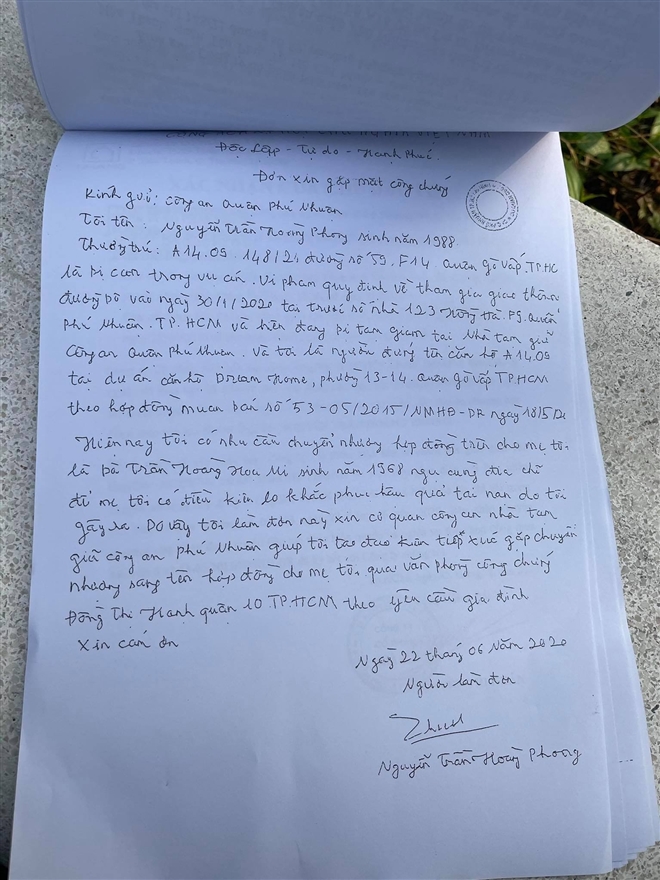 Độc lập - Tự do - Hạnh Phúc
Đơn xin gặp mặt công chứng
Kính gửi: Công an Quận Phú Nhuận
Tôi tên: Nguyễn Trần Hoàng Phong sinh năm 1988
Thường trú: A14.09 148/21 đường số 59. F14. Quận gò vấp. TP.HC
là bị can trong vụ án. Vi phạm quy định về tham gia giao thông
đường bộ vào ngày 30/1/2020 tại trước số nhà 123 Hồng Hà. P9. Quận
Phú Nhuận. TP. HCM và hiện đang bị tạm giam tại Nhà tạm giữ
Công an Quận Phú Nhuận. Và tôi là người đứng tên căn hộ A14.09
tại dự án căn hộ Dream Home, phường 13-14. Quận gò vấp TPHCM
theo hợp đồng mua bán số 53-05/2015/NMHĐ-DR ngày 18/5/20
Hiện nay tôi có nhu cầu chuyển nhượng hợp đồng trên cho mẹ tôi
là bà Trần Hoàng Hoạ Mi sinh năm 1968 ngụ cùng địa chỉ
để mẹ tôi có điều kiện lo khắc phục hậu quả tai nạn do tôi
gây ra. Do vậy tôi làm đơn này xin cơ quan công an nhà tạm
giữ công an phú Nhuận giúp tôi tạo điều kiện tiếp xúc gặp chuyển
nhượng sang tên hợp đồng cho mẹ tôi, qua văn phòng công chứng
Đồng Thị Hạnh quận 10 TP.HCM theo yêu cầu gia đình
Xin cám ơn
Ngày 22 tháng 06 năm 2020
Người làm đơn
Nguyễn Trần Hoàng Phong